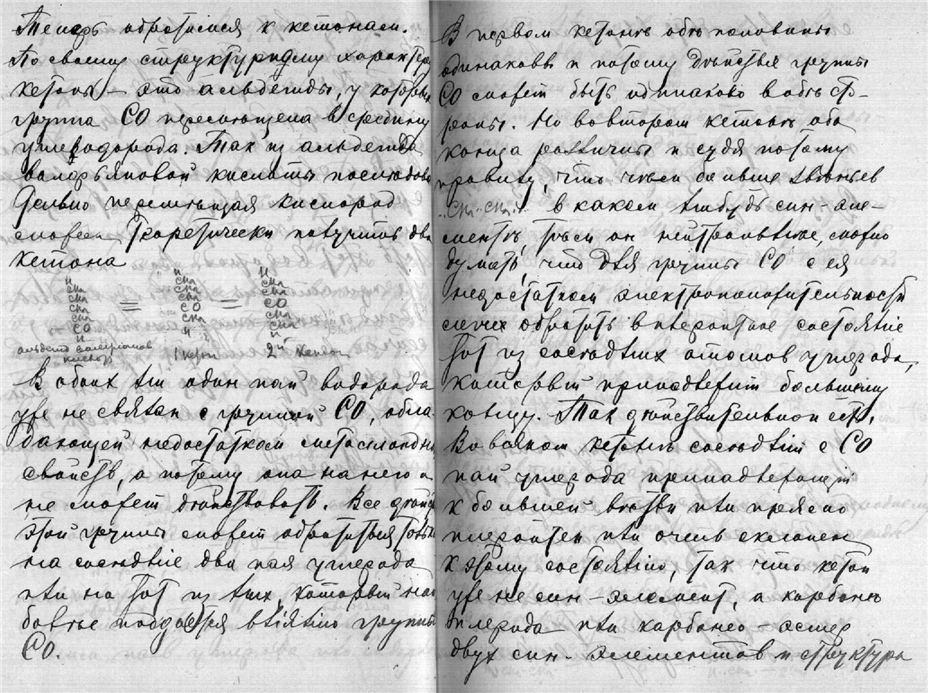 Теперь обратимся к кетонам.
По своему структурному характеру
кетоны — это альдегиды, у которых
группа СО перемещена в средину
углеводорода. Так из альдегида
валерьяновой кислоты последова-
тельно перемещая кислород
можем теоретически получить два
кетона
H H H
CH₂ CH₂ CH₂
CH₂ = CH₂ = CH₂
CH₂ CO CO
CO
H
альдегид валерианов 1 кетон 2й кетон
кислоты
В обоих один пай водорода
уже не связан с группой СО, обла-
дающей недостатком металлоидн
свойств, а потому она на него и
не может действовать. Все действ
этой группы может обратиться только
на соседние два пая углерода
или на тот из них, который наи
более поддается влиянию группы
СО.
В первом кетоне обе половины
одинаковы и потому действия группы
СО может быть одинаково в обе ст-
роны. Но во втором кетоне оба
конца различны и судя по тому
правилу, что чем больше звеньев
..CH₂-CH₂.. в каком нибудь син-эле-
менте, тем он нейтральнее, можно
думать, что для группы СО с ея
недостатком электроположительности
легче обратить в состояние
тот из соседних атомов углерода,
который принадлежит большему
концу. Так действительно и есть.
Во всяком кетоне соседний с СО
пай углерода принадлежащий
к большей ветви или прямо
или очень склонен
к этому состоянию, так что кетон
уже не син-элемент, а
углерода или
двух син-элементов и структура